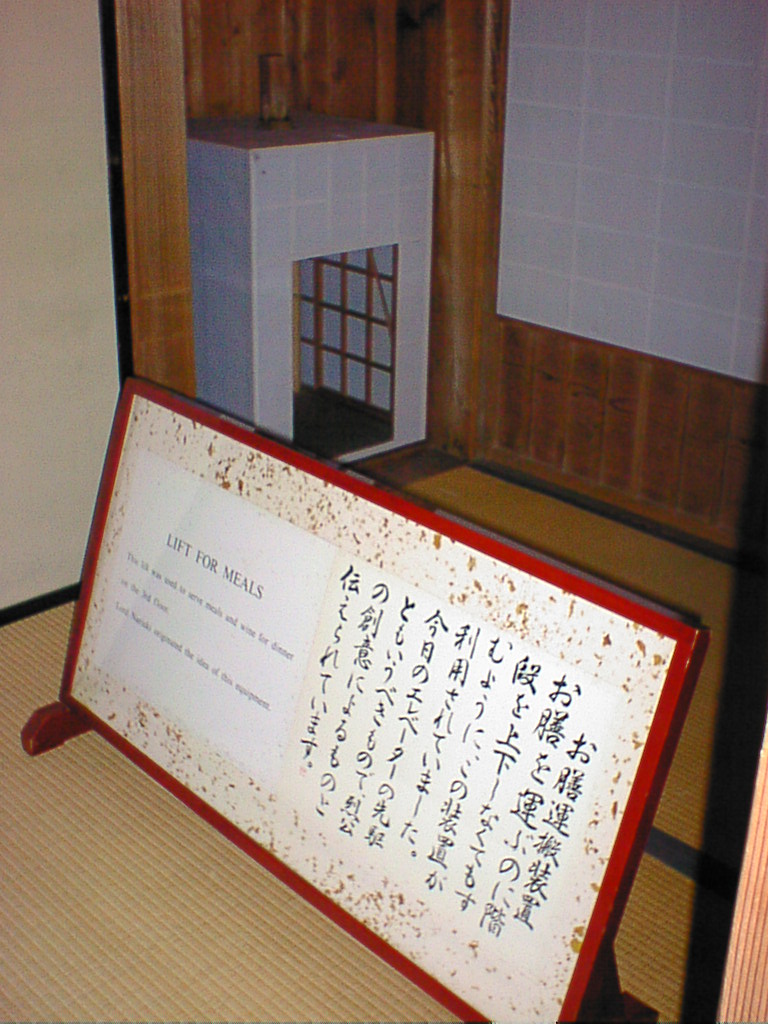 LIFT FOR MEALS
This lift was used to serve meals and wine for dinner
on the 3rd floor.
Lord Nariaki originated the idea of this equipment.
お膳運搬装置
お膳を運ぶのに階
段を上下しなくてもす
むように、この装置が
利用されていました。
今日のエレベーターの先駆
ともいうべきもので烈公
の創意によるものと
伝えられています。